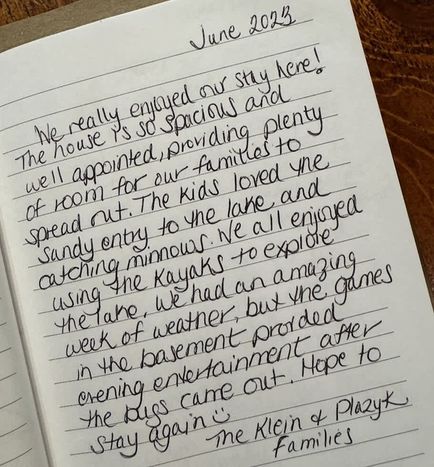 June 2023
We really enjoyed our stay here!
The house is so spacious and
well appointed, providing plenty
of room for our families to
spread out. The kids loved the
sandy entry to the lake and
catching minnows. We all enjoyed
using the kayaks to explore
the lake. We had an amazing
week of weather, but the games
in the basement provided
evening entertainment after
the bugs came out. Hope to
stay again☺
The Klein & Plazyk
families